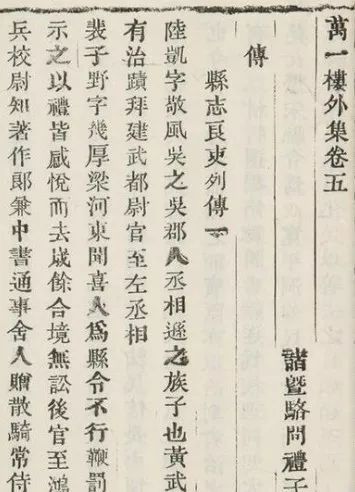 萬一樓外集卷五
諸暨駱問禮子
傳
縣志良吏列傳一
陸凱字敬風吳之吳郡人丞相遜之族子也黃武
有治蹟拜建武都尉官至左丞相
裴子野字幾厚梁河東聞喜人爲縣令不行鞭罰
示之以禮皆感悅而去歲餘合境無訟後官至鴻
兵校尉知著作郎兼中書通事舍人贈散騎常侍